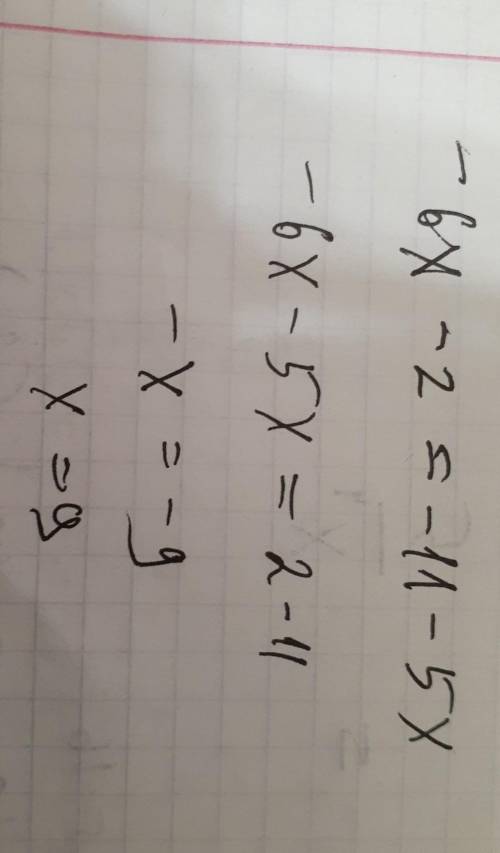 -6x - 2 = -11 - 5x
-6x - 5x = 2 - 11
-x = -9
x = 9